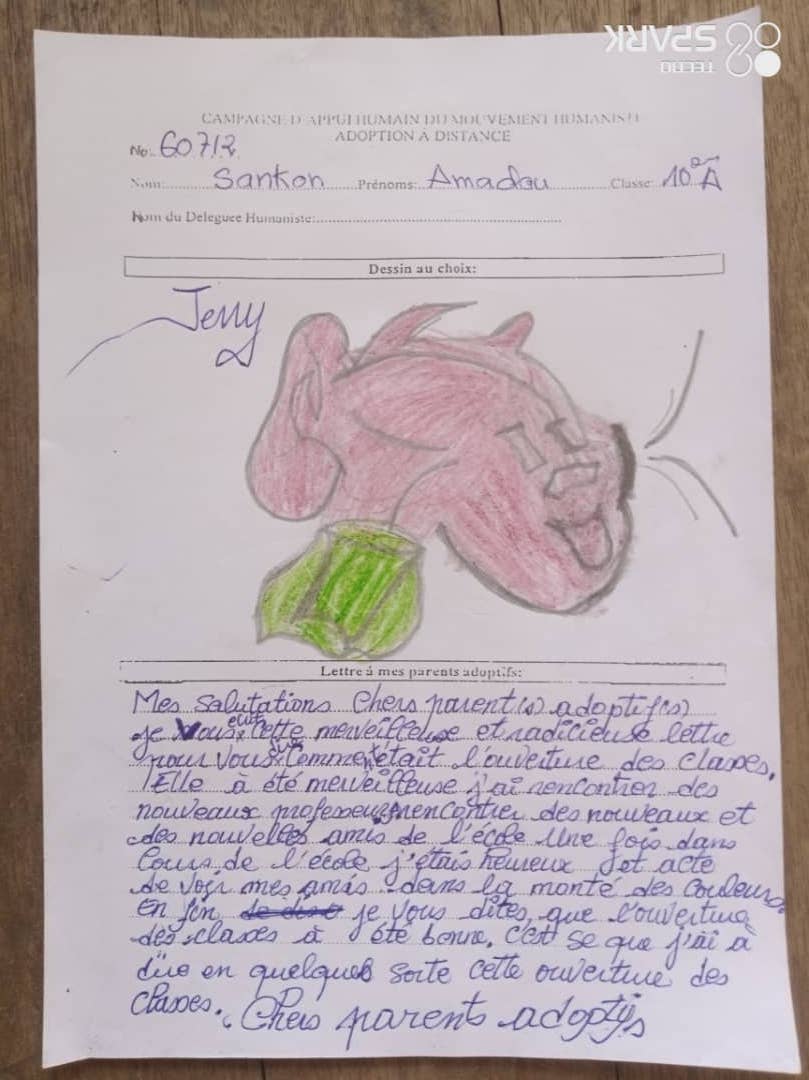 SPARK
TECNO
CAMPAGNE D'APPUI HUMAIN DU MOUVEMENT HUMANISTE
ADOPTION À DISTANCE
No: 60712
Nom: Sankon Prénoms: Amadou Classe: 10èm A
Nom du Deleguee Humaniste:
Dessin au choix:
Jerry
Lettre á mes parents adoptifs:
Mes salutations Chers parent(s) adoptif(s)
je vous écrit cette merveilleuse et radicieuse lettre
pour vous Comment était l'ouverture des classes.
Elle à été merveilleuse j'ai rencontrer des
nouveaux professeurs, rencontrer des nouveaux et
des nouvelles amis de l'école Une fois dans
Cours de l'école j'étais heureux et acte
de voir mes amis dans la monté des couleurs
En fin je vous dites, que l'ouverture
des classes à été bonne. C'est se que j'ai à
dire en quelques sorte cette ouverture des
classes. Chers parents adoptifs